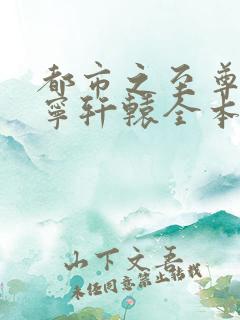 都市之至尊
宁轩辕全本
山下文吾
未经同意禁止转载